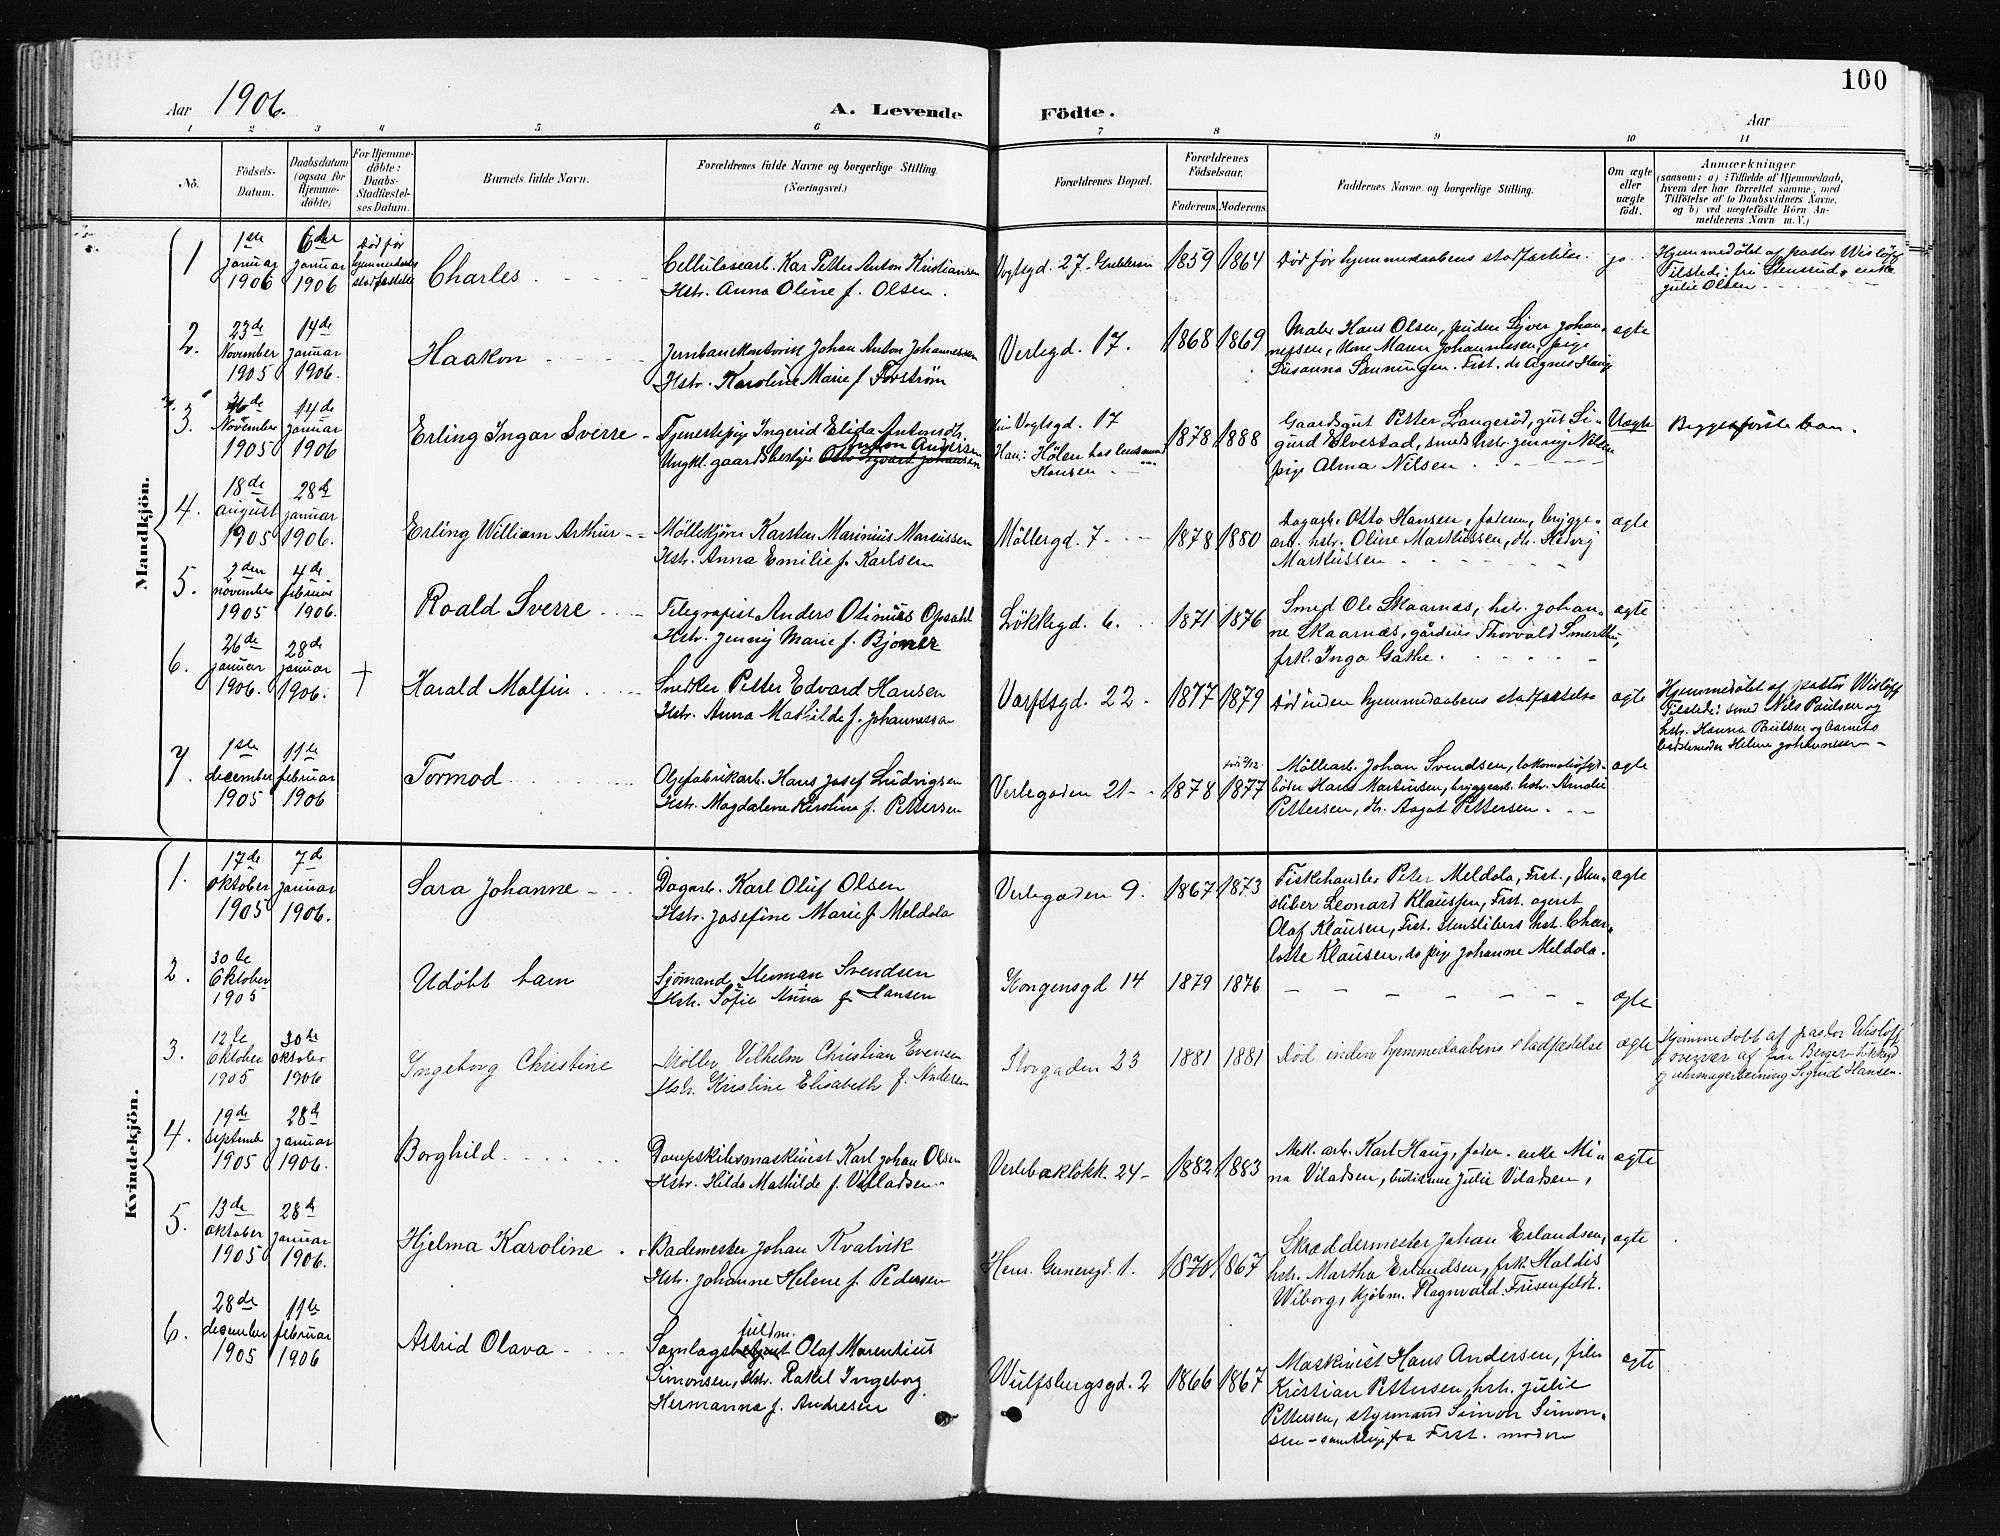 100
Aar 1906.
A. Levende Födte.
Aar
1 2 3 4 5 6 7 8 9 10 11
No.
Födsels-
Datum.
Daabsdatum
(ogsaa for
Hjemme-
döbte)
For Hjemme-
döbte:
Daabs-
Stadfæstel-
ses Datum.
Barnets fulde Navn.
Forældrenes fulde Navne og borgerlige Stilling.
(Næringsvei.)
Forældrenes Bopæl.
Forældrenes
Födselsaar.
Faderens. Moderens.
Faddernes Navne og borgerlige Stilling.
Om ægte
eller
uægte
födt.
Anmærkninger
(saasom: a) i Tilfælde af Hjemmedaab,
hvem der har forrettet samme, med
Tilföielse af to Daabsvidners Navne.
og b) ved uægtefödte Börn An-
melderens Navn m. V.)
Mandkjön.
1
1ste
januar
1906
6der
januar
1906
Död før
hjemmedaabs
stadfæstelse
Charles
Cellulosearb. Kar Petter Anton Kristiansen
Hstr. Anna Oline f. Olsen.
Vogtsgd. 27
1859 1864
Död før hjemmedaabens stadfæstelse
Hjemmedøbt af pastor Wisløff
Tilstede: fru Stensrud, enke
Julie Olsen
2.
23de
November
1905
14de
januar
1906.
Haakon
Jernbanekontorist Johan Anton Johannessen
Hstr. Karoline Marie f. Forström
Verlegd. 17.
1868 1869
Maler Hans Olsen, Syver Johan-
nessen, Maren Johannessen, pige
Susanna . Frst. do Agnes Hauge
ægte
3.
November
1905
14de
januar
1906
Erling Ingar Sverre
Tjenestepige Ingerid Elida Antonsdtr.
Anton Andersen
Ungkl. gaardsbestyr
Vogtsgd. 17
Han: Hölen hos lensmand
Hansen
1878 1888
Gaardsgut Petter Langeröd, gut Si-
gurd Elvestad, smeds hst. Jenny Nilsen
pige Alma Nilsen
Uægte
Begges første barn.
4.
18de
august
1905
28de
januar
1906.
Erling William Arthur
Karsten Marinius Marcussen
Hstr. Anna Emilie f. Karlsen
Möllergd. 7
1878 1880
Dagarb. Otto Hansen, faderen, brygge-
arb. hstr. Oline Markussen, Hedvig
Markussen
ægte
5.
2den
november
1905
4de
februar
1906.
Roald Sverre
Telegrafist Anders Otinius Opsahl
Hstr. Jenny Marie f. Bjöner
Lökkegd. 6.
1871 1876
Smed Ole Skaarnæs, hst. Johan-
ne Skaarnæs, gårdeier Thorvald
frk. Inga Gathe.
ægte
6.
26de
januar
1906.
28de
januar
1906.
†
Harald Molfin
Snedker Petter Edvard Hansen
Hstr. Anna Mathilde f. Johannessen
Varftsgd. 22
1877 1879
Död inden hjemmedaabens stadfæstelse
ægte
Hjemmedøbt af pastor Wisløff
Tilstede: smed Nils Paulsen og
hstr. Hanna Paulsen og barnets
bedstemoder Helene Johannessen
7.
1ste
december
1905
11te
februar
1906
Tormod
Oljefabrikarb. Hans Josef Ludvigsen
Hstr. Magdalene Karoline f. Pettersen
Verlegaden 21
1878 1877
Möllearb. Johan Svendsen, lokomotivfyr-
böder Hans Martinsen, bryggearb. hstr. Amalie
Pettersen, dtr. Aagot Pettersen
ægte
Kvindekjön.
1.
17de
oktober
1905
7de
januar
1906.
Sara Johanne
Dagarb. Karl Oluf Olsen
Hstr. Josefine Marie f. Meldola
Verlegaden 9.
1867 1873
Fiskehandler Peter Meldola, Frst., Sten-
sliber Leonard Klaussen, Frst. agent
Olaf Klausen, Frst. stenslibers hst. Char-
lotte Klausen, do pige Johanne Meldola.
ægte
2.
30te
Oktober
1905
Udöbt barn
Sjömand Herman Svendsen
Hstr. Sofie Anna f. Hansen
Kongensgd 14
1879 1876
ægte
3.
12te
Oktober
1905
30te
oktober
1906
Ingeborg Christine
Möller Vilhelm Christian Evensen
Hstr. Kristine Elisabeth f. Andersen
Storgaden 23
1881 1881
Död inden hjemmedaabens stadfæstelse
ægte
Hjemmedobt af pastor Wisløff
i overvær af fru Berger
Sigrid Hansen.
4.
19de
september
1905
28de
januar
1906.
Borghild
Dampskibsmaskinist Karl Johan Olsen
Hstr. Hilda Mathilde f. Viladsen
Verlebakløkk. 24
1882 1883
Mek. arb. Karl Haug, fader. enke Mi-
na Viladsen, butikdame Julie Viladsen,
ægte
5.
13de
oktober
1905
28de
januar
1906.
Hjelma Karoline
Bademester Johan Kvalvik
Hstr. Johanne Helene f. Pedersen
Henr. Gernersgd. 1.
1870 1867
Skræddermester Johan Erlandsen,
hstr. Martha Erlandsen, frk. Haldis
Wiborg, kjöbm. Ragnvald Friisenfeldt.
ægte
6.
28de
december
1905
11te
februar
1906
Astrid Olava
Samlags fuldm. Olaf Marentius
Simonsen, Hstr. Rakel Ingeborg
Hermanna f. Andresen
Wulfsbergsgd. 2
1866 1867
Maskinist Hans Andersen, filer
Kristian Pettersen, hst. Julie
Pettersen, styrmand Simon Simon-
sen - samtlige fra Frst. moderen
ægte